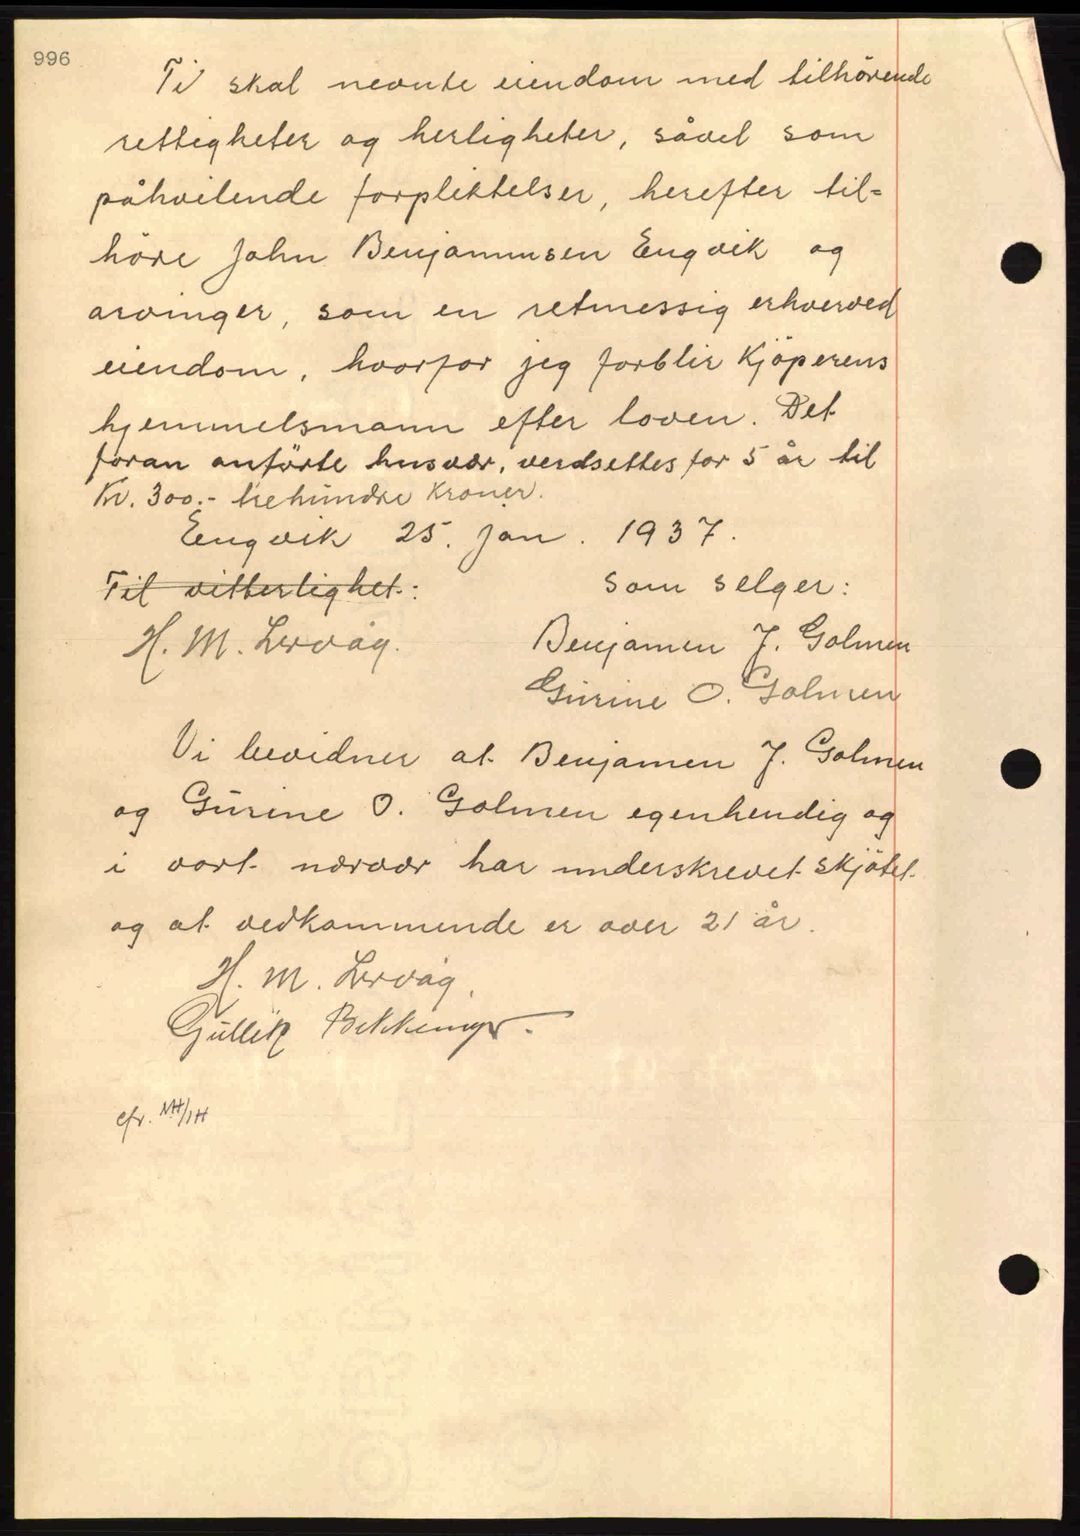 996
Ti skal nevnte eiendom med tilhörende
rettigheter og herligheter, såvel som
påhvilende forpliktelser, herefter til=
höre John Benjaminsen Engvik og
arvinger, som en retmessig erhverved
eiendom, hvorfor jeg forblir Kjöperens
hjemmelsmann efter loven. Det
foran anförte husvær, verdsettes for 5 år til
Kr. 300.- trehundre Kroner.
Engvik 25. jan. 1937.
Til vitterlighet:
Som selger:
H. M. Lervåg.
Benjamen J. Golmen
Gurine O. Golmen
Vi bevidner at Benjamen J. Golmen
og Gurine O. Golmen egenhendig og
i vort nærvær har underskrevet skjötet
og at vedkommende er over 21 år.
H. M. Lervåg.
Gullik
cfr. MH/IH